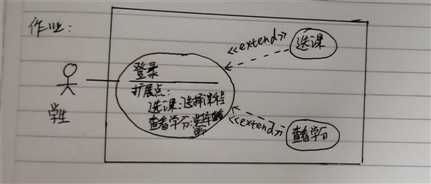 作业:
《extend》
选课
登录
扩展点:
选课:选择课程
学生
查看学分:
《extend》
查看学分